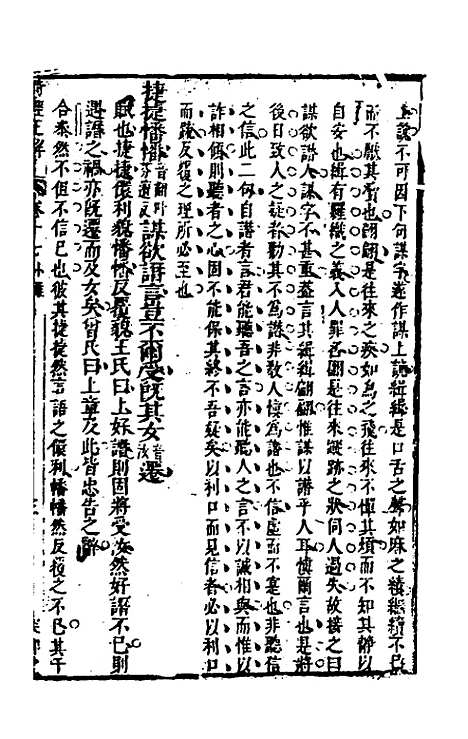 上說不可因下句謀字遂作謀上說緝緝是口舌之聲如麻之績繼續不已
而不厭其煩也翩翩是往來之疾如鳥之飛往來不憚其煩而不知其靜以
自安也緝有羅織之義入人罪名翩是往來蹤跡之狀伺人過失故接之曰
謀欲譖人謀字不甚重葢言其緝緝翩翩惟謀以譖乎人耳慎爾言也是將
後日致人之疑者動其不爲譖非教人慎爲譖也不信虛而不寔也非聽信
之信此二句自譖者言君能聽吾之言亦能聽人之言不以誠相與而惟以
詐相傾則聽者之心固不能保其終不吾疑矣以利口而見信者必以利口
而疏反復之理所必至也
捷捷幡幡謀欲譖言豈不爾受旣其女遷
賦也捷捷儇利貌幡幡反覆貌王氏曰上好譖則固將受女然好譖不已則
遇譖之禍亦旣遷而及女矣曾氏曰上章及此皆忠告之辭
合叅然不但不信已也彼其捷捷然言語之儇利幡幡然反復之不已其于